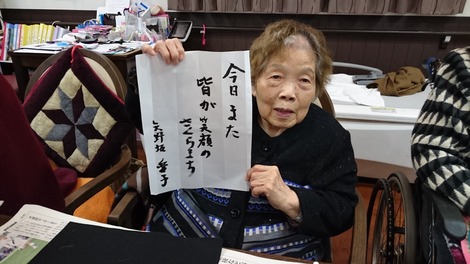 今日また
皆が笑顔の
さくらまち
矢野坂